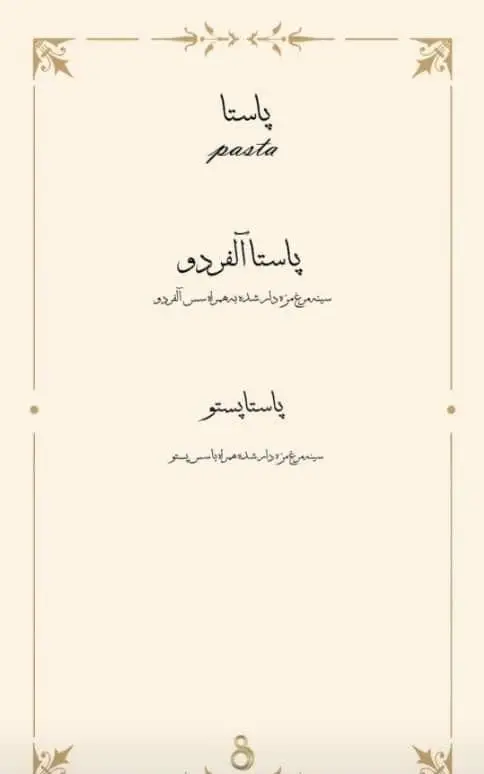 پاستا
pasta
پاستا آلفردو
سینه مرغ مزه دار شده به همراه سس آلفردو
پاستا پستو
سینه مرغ مزه دار شده همراه با سس پستو
8